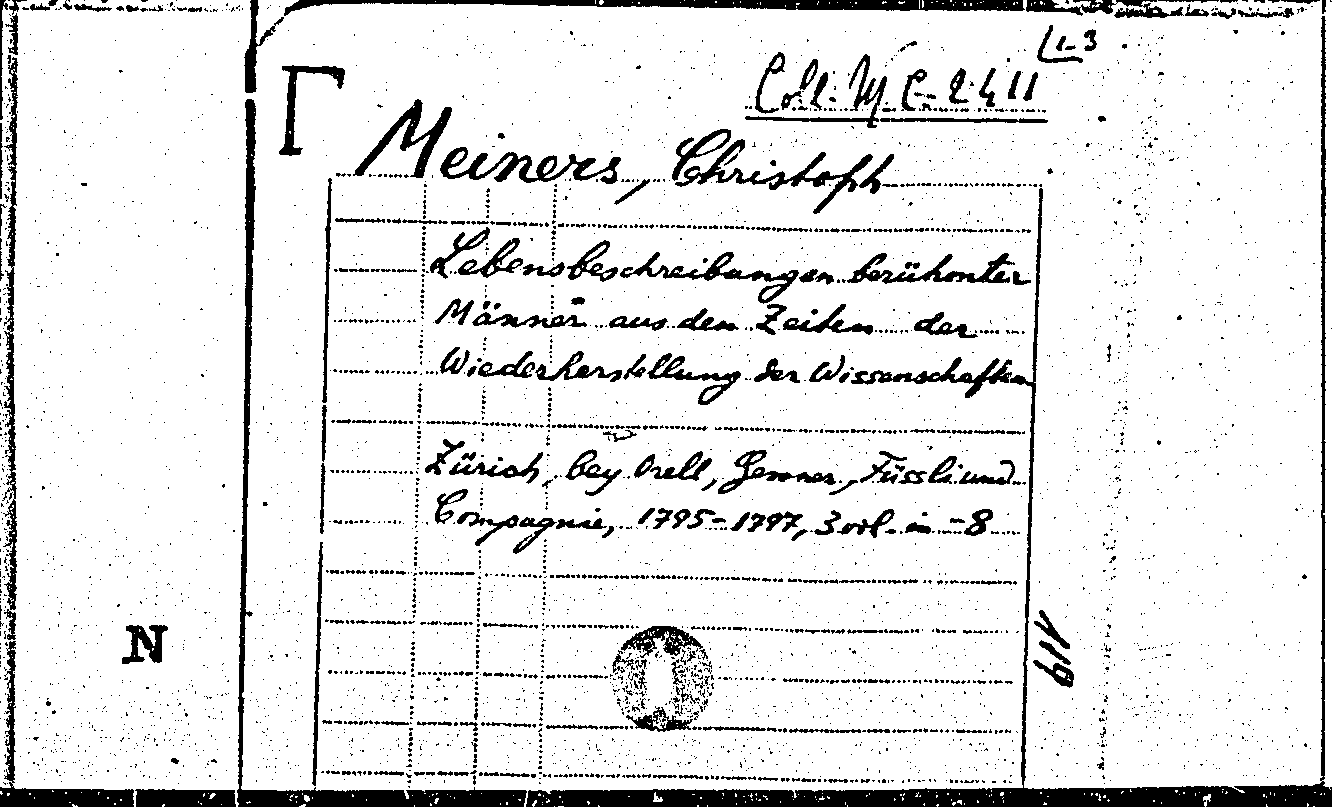 1-3
Coll. M C-2411
Meiners, Christoph
Lebensbeschreibungen berühmter
Männer aus den Zeiten der
Wiederherstellung der Wissenschaften
Zürich, bey Orell, Gessner, Füssli und
Compagnie, 1795-1797, 3 vol. in-8
N